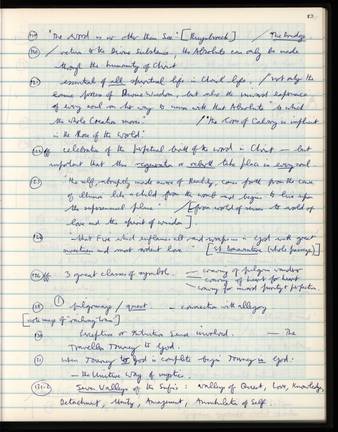 "The Word is no other than See." [Ruysbroeck] / The bridge
/ return to the Divine Substance, the Absolute can only be made
through the humanity of Christ
essentials of all spiritual life in Christ life. / "not only the
process of Divine Wisdom, but also the inward experience
of every soul on the way to union with that Absolute "to which
the whole Creation moves." / "The Cross of Calvary is implicit
in the Rose of the World."
celebration of the perpetual birth of the word in Christ — but
important that this regeneration or rebirth take place in every soul.
"the self, abruptly made aware of Reality, comes forth from the cave
of illusion like a child from the womb and begins to live upon
the supersensual plane." / [from world of sense to world of
love and the spirit of wonder]
"— that Fire which enflames all and wraps in God with great
unction and most ardent love." [St Bonaventura (whole passage)]
3 great classes of symbols. — craving of pilgrim wanderer
— craving of heart for heart
— craving for inward purity & perfection
(1) pilgrimage / quest — connection with allegory
[note map of "railway lines"]
involved. — The
Travellers Journey to God.
when Journey to God is complete begins Journey in God.
— the Unitive Way of mystics.
Seven Valleys of the Sufis: valleys of Quest, Love, Knowledge,
Detachment, Unity, Amazement, Annihilation of Self.